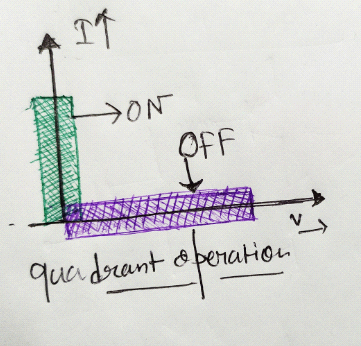 I↑
→ON
OFF
V→
quadrant operation